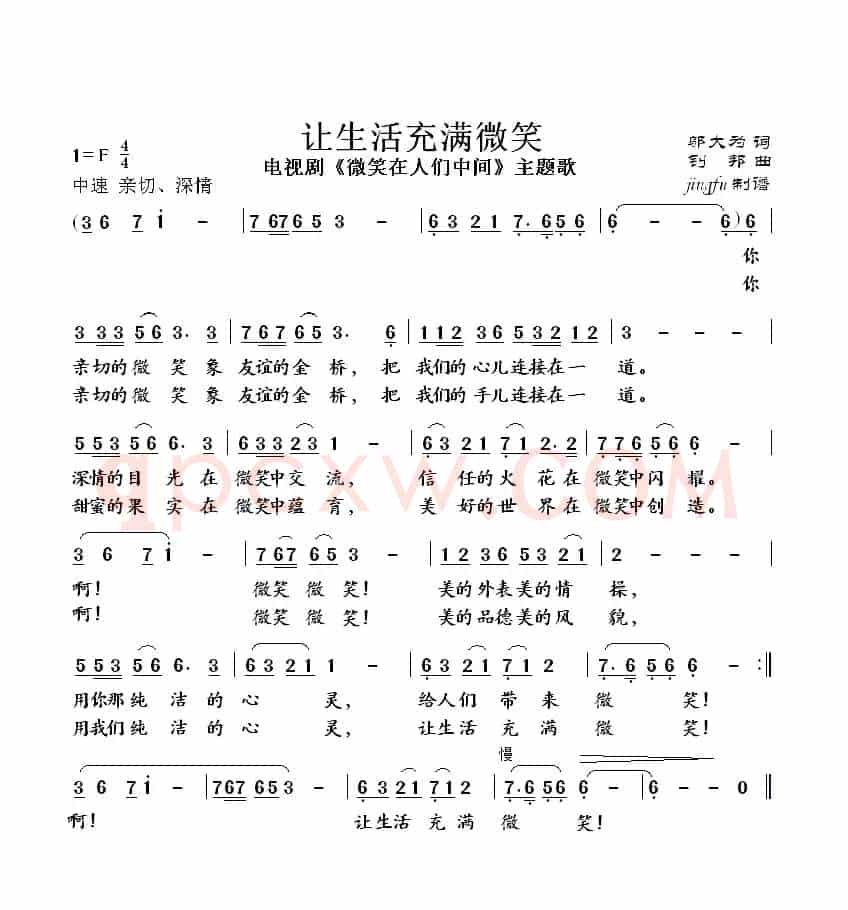 让生活充满微笑
1=F 4/4
电视剧《微笑在人们中间》主题歌
邬大为 词
钊邦 曲
中速 亲切、深情
jingfu 制谱
(3 6 7 i - | 7 67 6 5 3 - | 6 3 2 1 7· 6 5 6 | 6 - - 6) 6 |
你
你
3 3 3 5 6 3· 3 | 7 6 7 6 5 3· 6 | 1 1 2 3 6 5 3 2 1 2 | 3 - - - |
亲切的微笑象友谊的金桥，把我们的心儿连接在一道。
亲切的微笑象友谊的金桥，把我们的手儿连接在一道。
5 5 3 5 6 6· 3 | 6 3 3 2 3 1 - | 6 3 2 1 7 1 2· 2 | 7 7 6 5 6 6 - |
深情的目光在微笑中交流，信任的火花在微笑中闪耀。
甜蜜的果实在微笑中蕴育，美好的世界在微笑中创造。
3 6 7 i - | 7 6 7 6 5 3 - | 1 2 3 6 5 3 2 1 | 2 - - - |
啊！微笑微笑！美的外表美的情操，
啊！微笑微笑！美的品德美的风貌，
5 5 3 5 6 6· 3 | 6 3 2 1 1 - | 6 3 2 1 7 1 2 | 7· 6 5 6 6 - :||
用你那纯洁的心灵，给人们带来微笑！
用我们纯洁的心灵，让生活充满微笑！
慢
3 6 7 i - | 7 6 7 6 5 3 - | 6 3 2 1 7 1 2 | 7· 6 5 6 6 - | 6 - - 0 ||
啊！让生活充满微笑！
qpcxw.com